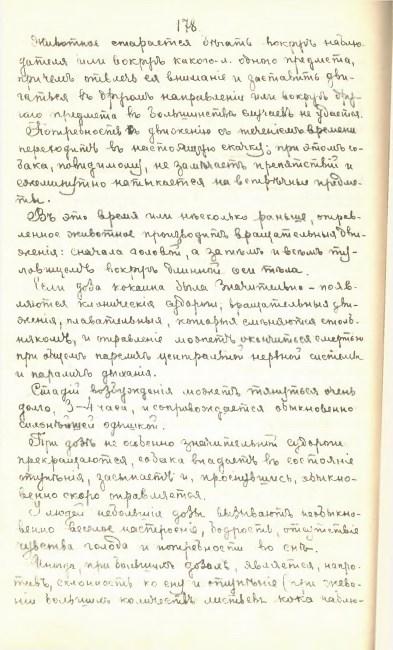 178
Животное старается бѣгать вокругъ наблю-
дателя или вокругъ какого-л. одного предмета,
причемъ отвлечь ея вниманіе и заставить дви-
гаться въ другомъ направленіи или вокругъ дру-
гого предмета въ большинствѣ случаевъ не удается.
Потребность къ движенію съ теченіемъ времени
переходитъ въ настоящую скачку; при этомъ со-
бака, повидимому, не замѣчаетъ препятствій и
ежеминутно натыкается на встрѣчные предме-
ты.
Въ это время или нѣсколько раньше, отрав-
ленное животное производитъ вращательныя дви-
женія: сначала головой, а затѣмъ и всѣмъ ту-
ловищемъ вокругъ длинной оси тѣла.
Если доза кокаина была значительно – появ-
ляются клоническія судороги, вращательныя дви-
женія, плавательныя, которыя смѣняются столб-
някомъ, и отравленіе можетъ окончиться смертью
при общемъ параличѣ центральной нервной системы
и параличѣ дыханія.
Стадій возбужденія можетъ тянуться очень
долго, 3–4 часа, и сопровождается обыкновенно
сильнѣйшей одышкой.
При дозѣ не особенно значительной судороги
прекращаются, собака впадаетъ въ состояніе
отупѣнія, засыпаетъ и, проснувшись, обыкно-
венно скоро оправляется.
У людей небольшія дозы вызываютъ необыкно-
венно веселое настроеніе, бодрость, отсутствіе
чувства голода и потребности во снѣ.
Иногда, при большихъ дозахъ, является, напро-
тивъ, склонность ко сну и отупѣніе (при жева-
ніи большихъ количествъ листьевъ кока наблю-